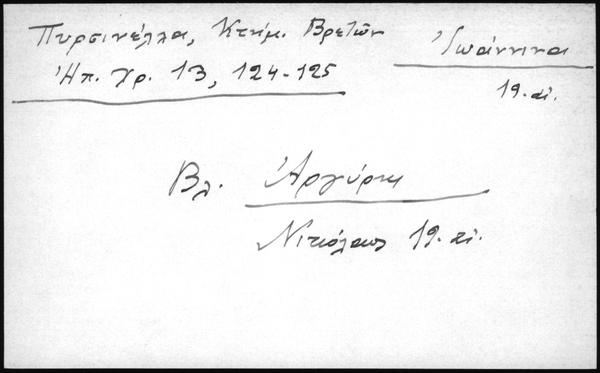 Πυρσινέλλα, Κτήμ. Βρετῶν
Ἠπ. Χρ. 13, 124-125
Ἰωάννινα
19. αἰ.
Βλ. Ἀργύρης
Νικόλαος 19. αἰ.